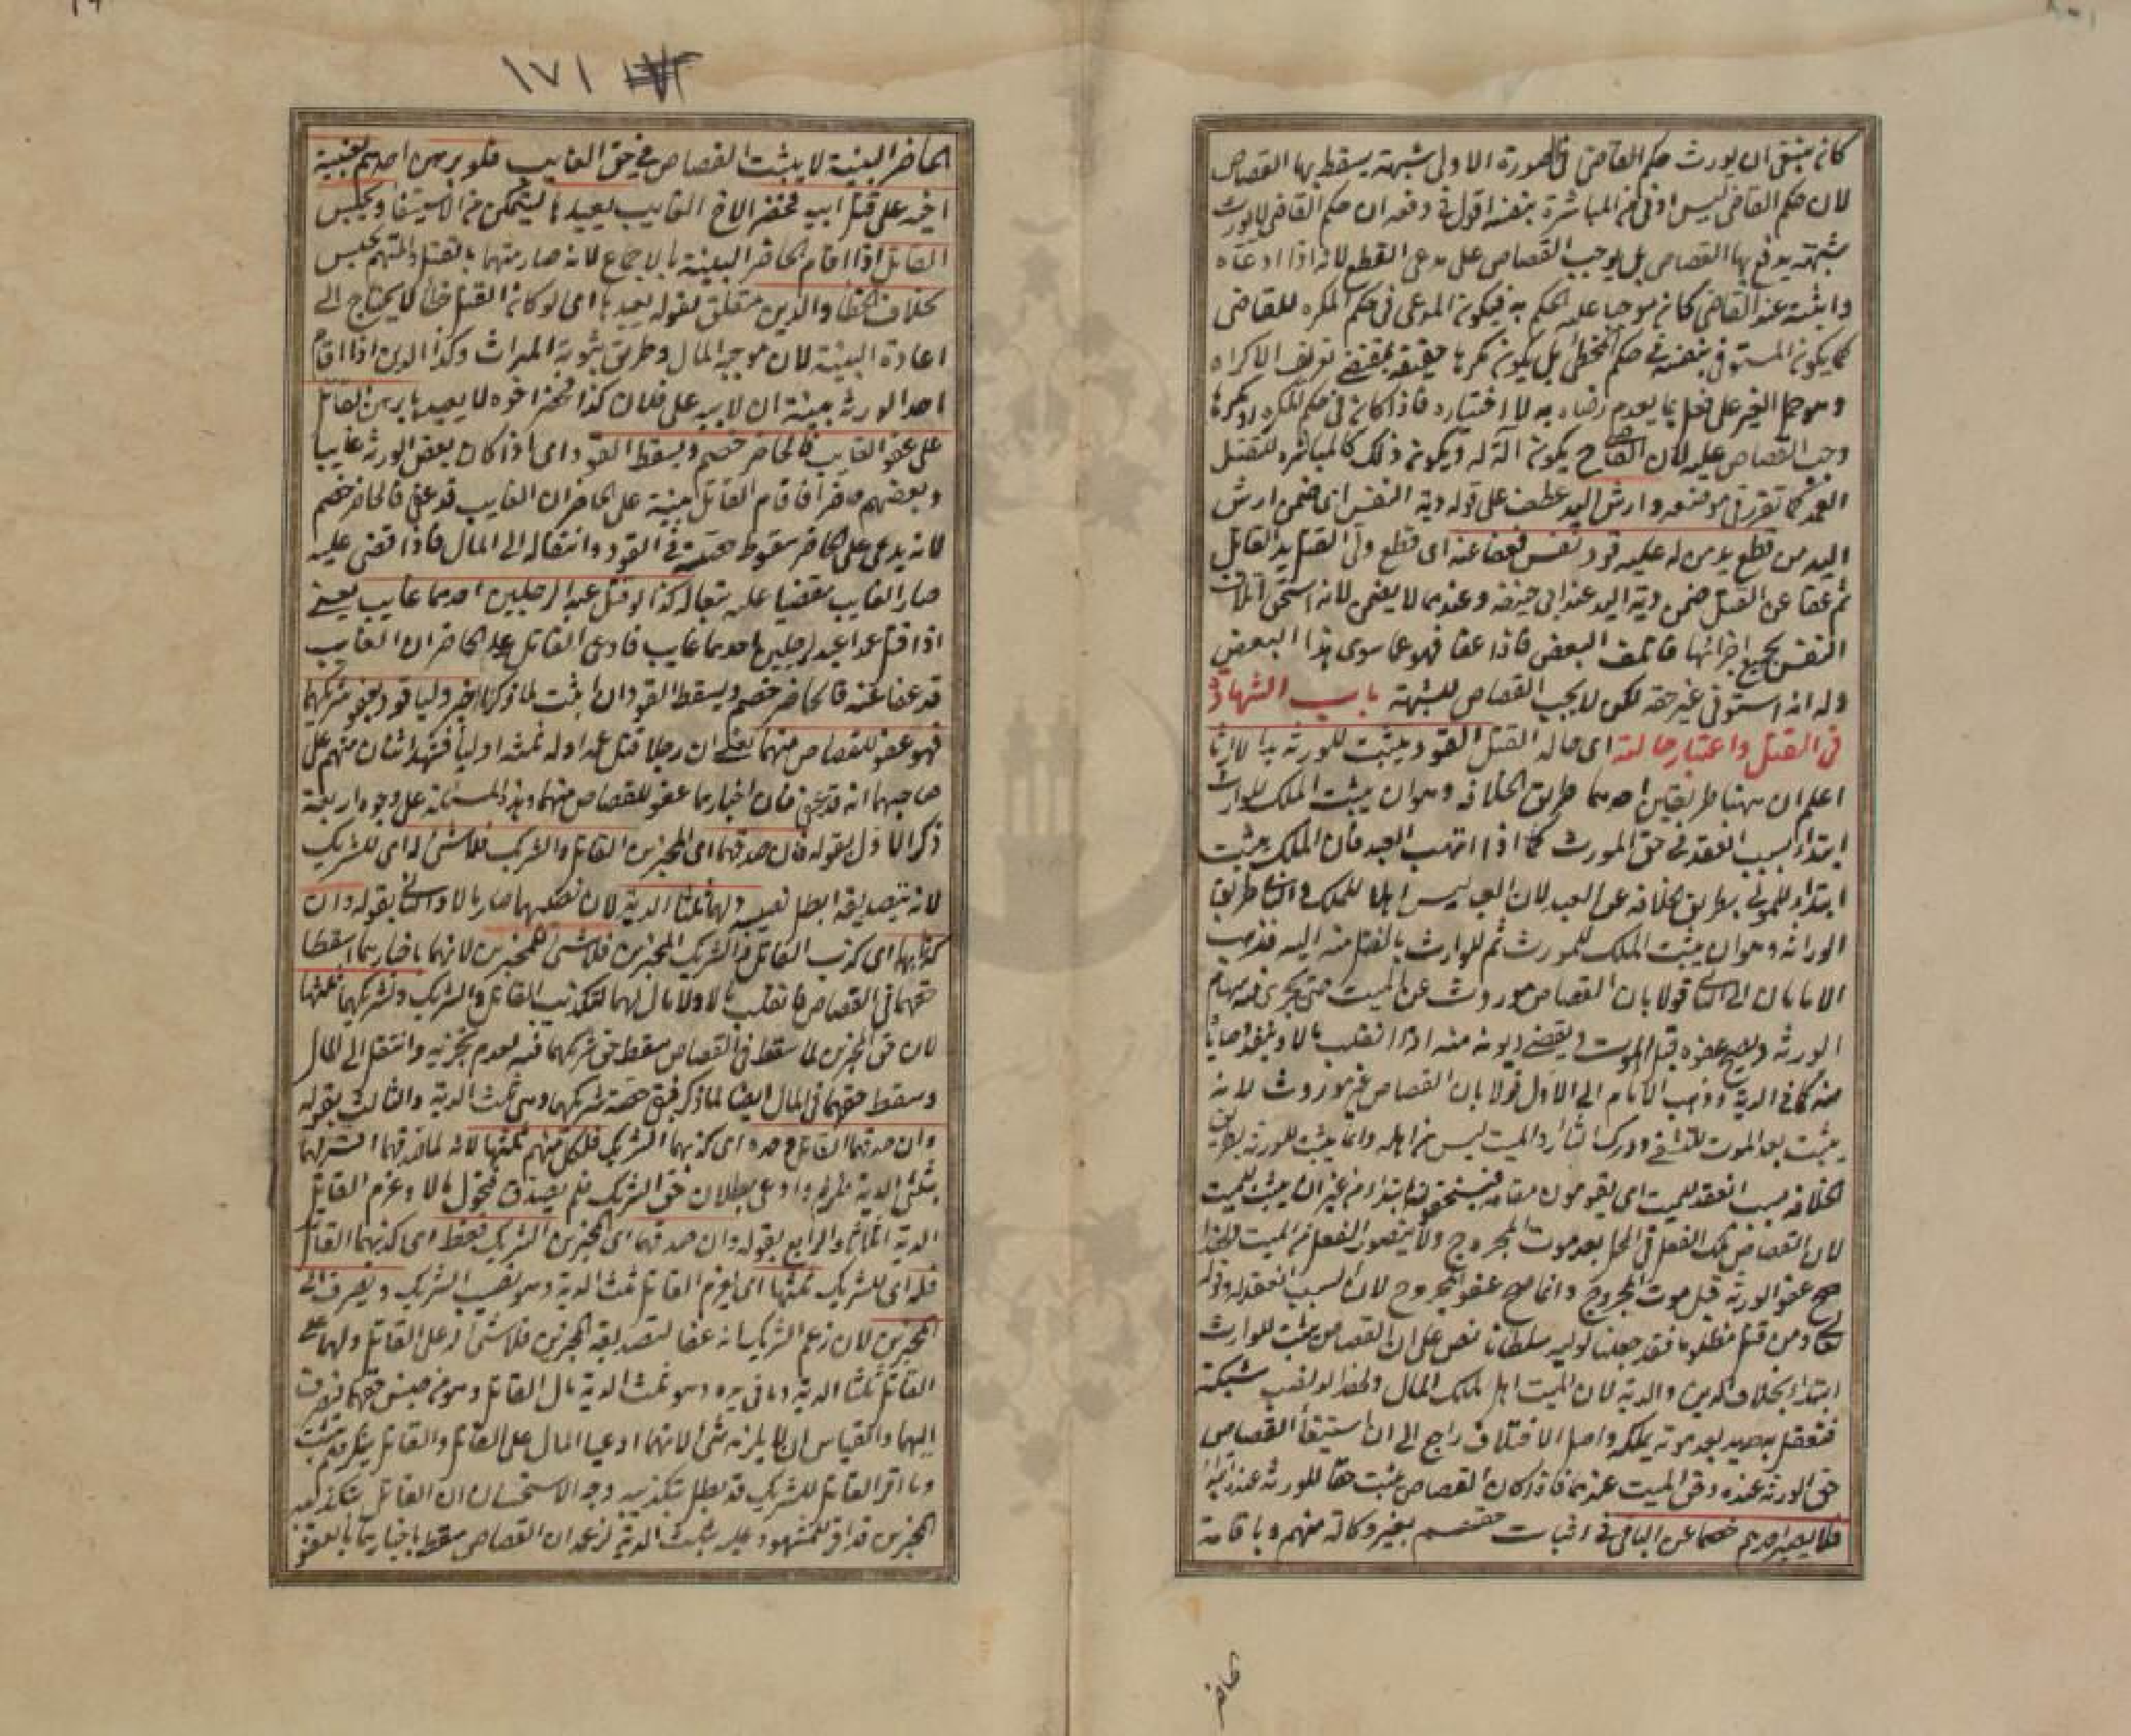 ١٧١
كانه ينبغي ان يورث حكم القاضي في الصورة الاولى شبهة يسقط بها القصاص
لان حكم القاضي ليس ادنى من المباشرة بنفسه اقول في دفعه ان حكم القاضي لا يورث
شبهة يدفع بها القصاص بل يوجب القصاص على مدعي القطع لانه اذا ادعاه
واثبته عند القاضي كان موجبا عليه الحكم به فيكون المدعي في حكم المكره للقاضي
كما يكون المستوفي بنفسه في حكم المخطئ بل يكون مكرها حقيقة بمقتضى تعريف الاكراه
وهو حمل الغير على فعل بما يعدم رضاه به لا اختياره فاذا كان في حكم المكره او مكرها
وجب القصاص عليه لان القاضي ح يكون آلة له ويكون ذلك كالمباشرة للقتل
العمد كما تقرر في موضعه وارش اليد عطف على قوله دية النفس اي ضمن ارش
اليد من قطع يد من له عليه قود نفس فعفا عنه اي قطع ولي القتيل يد القاتل
ثم عفا عن القتل ضمن دية اليد عند ابي حنيفة وعندهما لا يضمن لانه استحق اتلاف
النفس بجميع اجزائها فاتلف البعض فاذا عفا فهو عما سوى هذا البعض
وله انه استوفى غير حقه لكن لا يجب القصاص للشبهة باب الشهادة
في القتل واعتبار حالته اي حالة القتل القود يثبت للورثة بدءا لا ارثا
اعلم ان ههنا طريقين احدهما طريق الخلافة وهو ان يثبت الملك للوارث
ابتداء بسبب انعقد في حق المورث كما اذا اتهب العبد فان الملك يثبت
ابتداء للمولى بطريق الخلافة عن العبد لان العبد ليس اهلا للملك والثاني طريق
الوراثة وهو ان يثبت الملك للمورث ثم للوارث بالنقل منه اليه فذهب
الامامان الى الثاني قولا بان القصاص موروث عن الميت حتى يجري فيه سهام
الورثة ويصح عفوه قبل الموت ويقضى ديونه منه اذا انقلب مالا وينفذ وصاياه
منه كما في الدية وذهب الامام الى الاول قولا بان القصاص غير موروث لانه
يثبت بعد الموت للتشفي ودرك الثار والميت ليس من اهله وانما يثبت للورثة بطريق
الخلافة بسبب انعقد للميت اي يقومون مقامه فيستحقونه ابتداء من غير ان يثبت للميت
لان القصاص ملك الفعل في المحل بعد موت المجروح ولا يتصور الفعل من الميت ولهذا
صح عفو الورثة قبل موت المجروح وانما صح عفو المجروح لان السبب انعقد له وقوله
تعالى ومن قتل مظلوما فقد جعلنا لوليه سلطانا نص على ان القصاص يثبت للوارث
ابتداء بخلاف الدين والدية لان الميت اهل لملك المال ولهذا لو نصب شبكة
فتعقل به صيد بعد موته يملكه واصل الاختلاف راجع الى ان استيفاء القصاص
حق الورثة عنده وحق الميت عندهما فاذا كان القصاص يثبت حقا للورثة عنده ابتداء
فلا يصير احدهم خصما عن الباقي في اثبات حقهم بغير وكالة منهم وباقامة
الحاضر
الحاضر البينة لا يثبت القصاص في حق الغايب فلو برهن احدهم بغيبة
اخيه على قتل ابيه فحضر الاخ الغايب يعيدها ليتمكن من الاستيفاء ويحبس
القاتل اذا اقام الحاضر البينة بالاجماع لانه صار متهما بالقتل والمتهم يحبس
بخلاف الخطأ والدين متعلق بقوله يعيدها اي لو كان القتل خطأ لا يحتاج الى
اعادة البينة لان موجبه المال وطريق ثبوته الميراث وكذا الدين اذا اقام
احد الورثة بينة ان لابيه على فلان كذا فحضر اخوه لا يعيدها برهن القاتل
على عفو الغايب فالحاضر خصم ويسقط القود اي اذا كان بعض الورثة غايبا
وبعضهم حاضرا فاقام القاتل بينة على الحاضر ان الغايب قد عفى فالحاضر خصم
لانه يدعي على الحاضر سقوط حقه في القود وانتقاله الى المال فاذا قضى عليه
صار الغايب مقضيا عليه تبعا له كذا لو قتل عبد الرجلين احدهما غايب يعني
اذا قتل عمدا عبد لرجلين احدهما غايب فادعى القاتل على الحاضر ان الغايب
قد عفا عنه فالحاضر خصم ويسقط القود ان اثبت لما ذكرنا اخبر وليا قود بعفو شريكهما
فهو عفو للقصاص منهما يعني ان رجلا قتل عمدا وله ثلثة اوليا فشهد اثنان منهم على
صاحبهما انه قد عفى فان اخبارهما عفو للقصاص منهما وهذه المسئلة على وجوه اربعة
ذكر الاول بقوله فان صدقهما اي المخبرين القاتل والشريك فلا شئ له اي للشريك
لانه بتصديقه ابطل نصيبه ولهما ثلثا الدية لان نصيبهما صار مالا والثاني بقوله وان
كذبهما اي كذب القاتل والشريك المخبرين فلا شئ للمخبرين لانهما باخبارهما اسقطا
حقهما في القصاص فانقلب مالا ولا مال لهما لتكذيب القاتل والشريك ولشريكهما ثلثها
لان حق المخبرين لما سقط في القصاص سقط حق شريكهما فيه لعدم تجزيه وانتقل الى المال
وسقط حقهما في المال ايضا لما ذكر فبقي حصة شريكهما وهي ثلث الدية والثالث بقوله
وان صدقهما القاتل وحده اي كذبهما الشريك فلكل منهم ثلثها لانه لما صدقهما اقر لهما
بثلثي الدية فلزم وادعى بطلان حق الشريك فلم يصدق فتحول مالا وغرم القاتل
الدية اثلاثا والرابع بقوله وان صدقهما اي المخبرين الشريك فقط اي كذبهما القاتل
فله اي للشريك ثلثها اي يغرم القاتل ثلث الدية وهو نصيب الشريك ويصرف الى
المخبرين لان زعم الشريك انه عفا لتصديقه المخبرين فلا شئ له على القاتل ولهما على
القاتل ثلثا الدية وما في يده وهو ثلث الدية مال القاتل وهو من جنس حقهما فيصرف
اليهما والقياس ان لا يلزمه شئ لانهما ادعيا المال على القاتل والقاتل ينكر فلم يثبت
وما اقر القاتل للشريك قد بطل بتكذيبه وجه الاستحسان ان القاتل بتكذيبه
المخبرين قد اقر للمشهود عليه بثلث الدية لزعمه ان القصاص سقط باخبارهما بالعفو